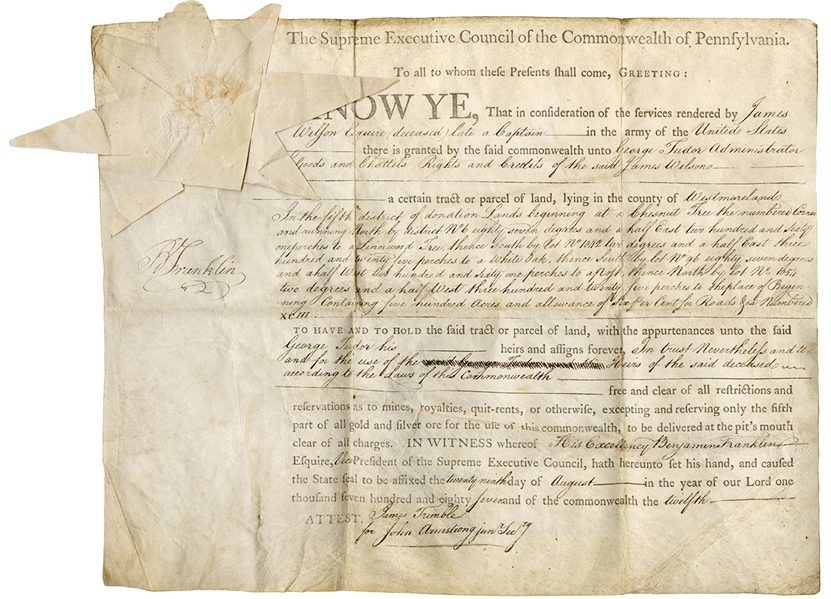 The Supreme Executive Council of the Commonwealth of Pennsylvania.
To all to whom theſe Preſents ſhall come, GREETING:
KNOW YE, That in conſideration of the ſervices rendered by James
Wilſon Esquire, deceased, late a Captain in the army of the United States
there is granted by the ſaid commonwealth unto George Tudor Administrator
Goods and Chattels Rights and Credits of the said James Wilson
a certain tract or parcel of land, lying in the county of Westmoreland
In the fifth district of donation Lands beginning at a Chesnut Tree the numbered Corner
and running North by district No 6 eighty seven degrees and a half East two hundred and Sixty
one perches to a Linnwood Tree, thence South by lot No 1042 two degrees and a half East three
hundred and twenty five perches to a White Oak, thence South by lot No 96 eighty seven degrees
and a half West two hundred and sixty one perches to a Post, thence North by lot No
two degrees and a half West three hundred and twenty five perches to the place of Begin
ning Containing five hundred Acres and allowance of Six per Cent for Roads &a Numbered
TO HAVE AND TO HOLD the ſaid tract or parcel of land, with the appurtenances unto the ſaid
George Tudor his heirs and aſſigns forever, In trust Nevertheleſs and to
and for the use of the Heirs of the said deceased
according to the Laws of the Commonwealth
free and clear of all reſtrictions and
reſervations as to mines, royalties, quit-rents, or otherwiſe, excepting and reſerving only the fifth
part of all gold and ſilver ore for the uſe of this commonwealth, to be delivered at the pit's mouth
clear of all charges. IN WITNESS whereof His Excellency Benjamin Franklin
Eſquire, Preſident of the Supreme Executive Council, hath hereunto ſet his hand, and cauſed
the State ſeal to be affixed the twenty ninth day of August in the year of our Lord one
thouſand ſeven hundred and eighty seven and of the commonwealth the twelfth
ATTEST. James Trimble
for John Armstrong junr. Secry
B Franklin